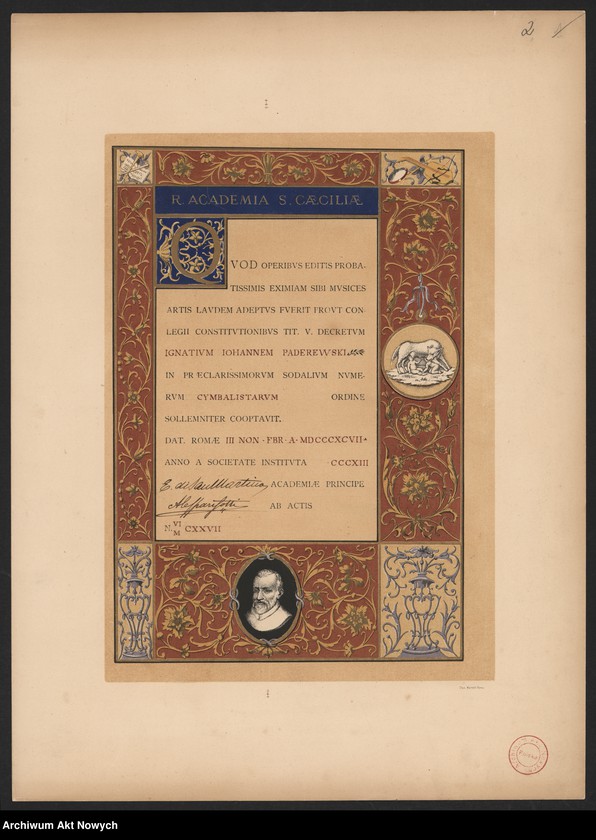 2
R. ACADEMIA S. CÆCILIÆ.
QVOD OPERIBVS EDITIS PROBA-
TISSIMIS EXIMIAM SIBI MVSICES
ARTIS LAVDEM ADEPTVS FVERIT PROVT CON-
LEGII CONSTITVTIONIBVS TIT. V. DECRETVM
IGNATIVM IOHANNEM PADEREWSKI
IN PRÆCLARISSIMORVM SODALIVM NVME-
RVM CYMBALISTARVM ORDINE
SOLLEMNITER COOPTAVIT.
DAT. ROMÆ III NON · FBR · A · MDCCCXCVII
ANNO A SOCIETATE INSTITVTA CCCXIII
E. di San Martino ACADEMIÆ PRINCIPE
AB ACTIS
N. VI/M CXXVII
Archiwum Akt Nowych